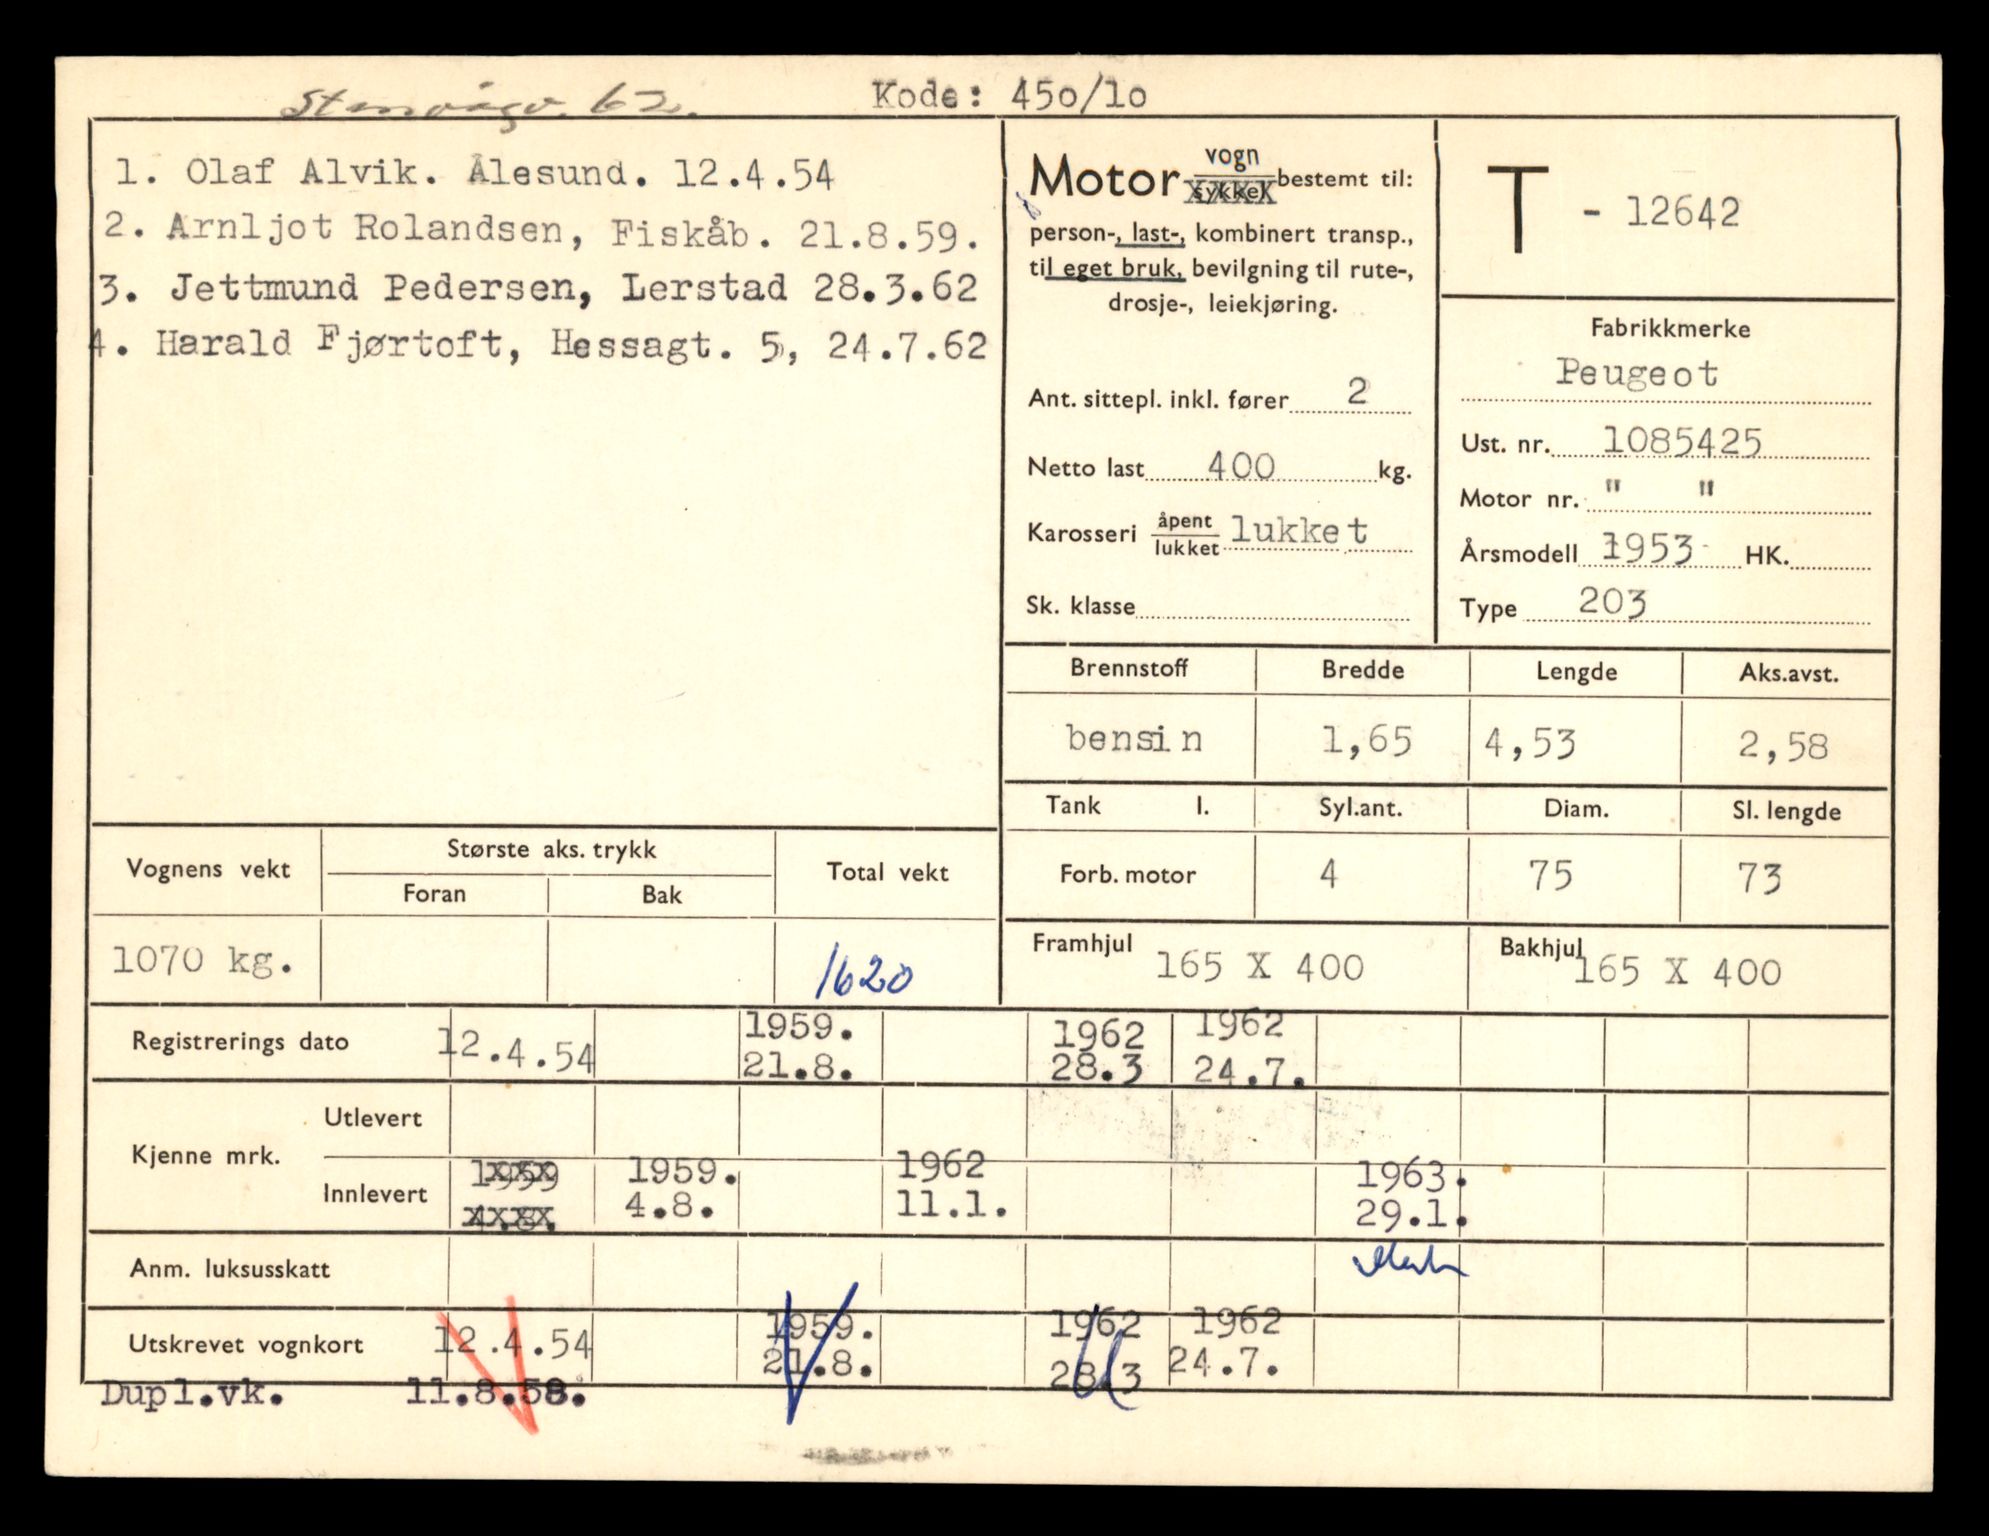 Kode: 450/10
1. Olaf Alvik. Ålesund. 12.4.54
2. Arnljot Rolandsen, Fiskåb. 21.8.59.
3. Jettmund Pedersen, Lerstad 28.3.62
4. Harald Fjørtoft, Hessagt. 5, 24.7.62
Motor vogn sykkel bestemt til:
person-, last-, kombinert transp.,
til eget bruk, bevilgning til rute-,
drosje-, leiekjøring.
Ant. sittepl. inkl. fører 2
Netto last 400 kg.
Karosseri åpent lukket lukket
Sk. klasse
T - 12642
Fabrikkmerke
Peugeot
Ust. nr. 1085425
Motor nr. " "
Årsmodell 1953 HK.
Type 203
Brennstoff Bredde Lengde Aks.avst.
bensin 1,65 4,53 2,58
Tank l. Syl.ant. Diam. Sl. lengde
Forb. motor 4 75 73
Framhjul 165 X 400 Bakhjul 165 X 400
Vognens vekt Største aks. trykk Total vekt
Foran Bak
1070 kg. 1620
Registrerings dato 12.4.54 1959. 21.8. 1962 28.3 1962 24.7.
Kjenne mrk.
Utlevert
Innlevert 1959 4.8. 1959. 4.8. 1962 11.1. 1963. 29.1.
Anm. luksusskatt
Utskrevet vognkort 12.4.54 1959. 21.8. 1962 28.3 1962 24.7.
Dupl.vk. 11.8.58.